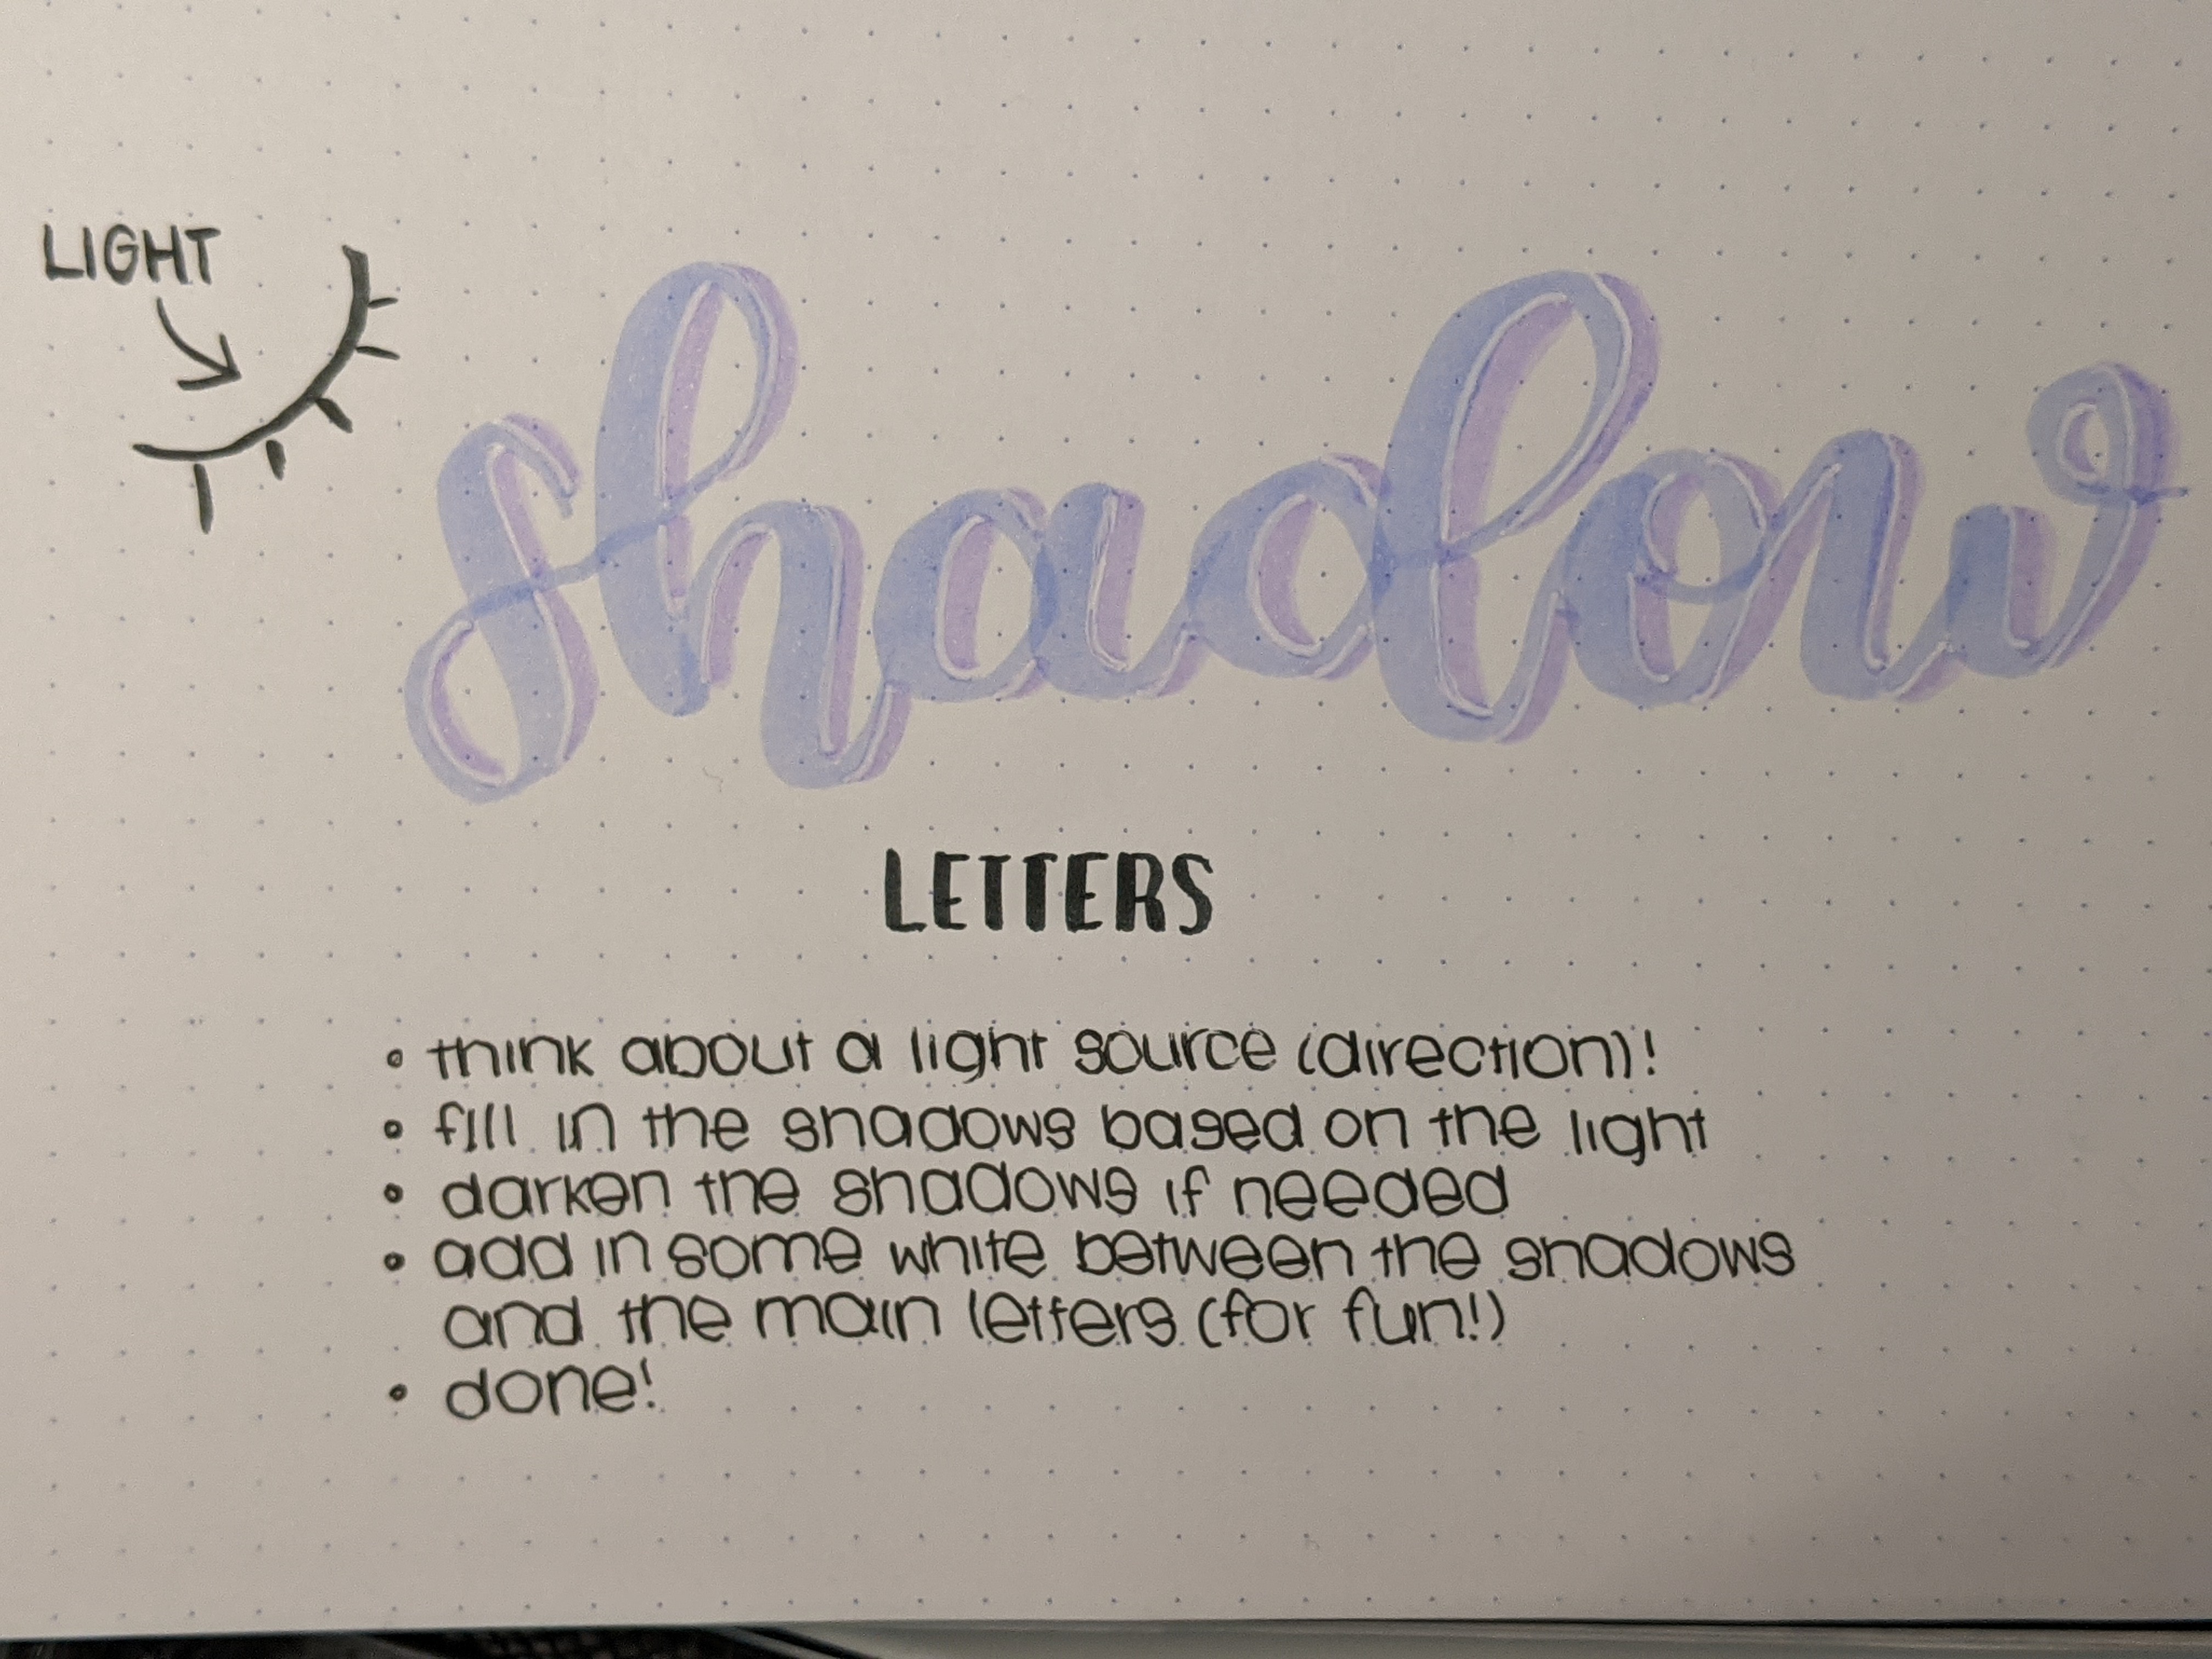 LIGHT
shadow
LETTERS
• think about a light source (direction)!
• fill in the shadows based on the light
• darken the shadows if needed
• add in some white between the shadows
and the main letters (for fun!)
• done!